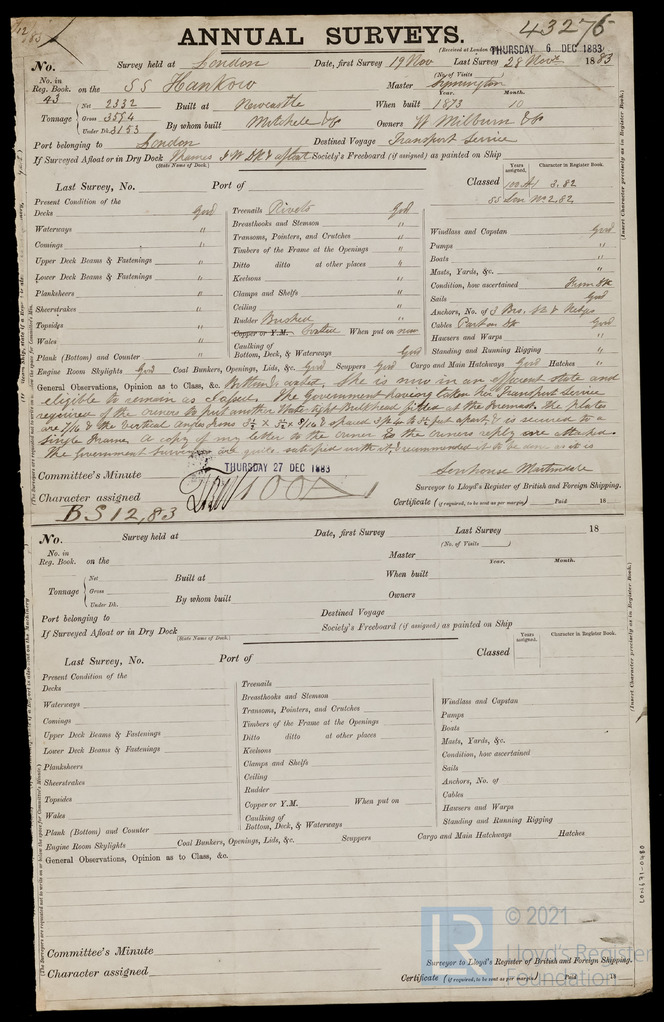 43276
ANNUAL SURVEYS.
(Received at London THURSDAY 6 DEC 1883
No. Survey held at London Date, first Survey 19 Nov Last Survey 28 Nov 1883
(No. of Visits
No. in Reg. Book. 43 on the SS Hankow Master Symington
Year. Month.
Tonnage Net 2332 Built at Newcastle When built 1873 10
Gross 3594
Under Dk. 3153 By whom built Mitchell & Co Owners W Milburn & Co
Port belonging to London Destined Voyage Transport Service
If Surveyed Afloat or in Dry Dock Thames & afloat Society's Freeboard (if assigned) as painted on Ship
(State Name of Dock.)
Years assigned. Character in Register Book.
Last Survey, No. Port of Classed 100A1 3,82
Present Condition of the
Decks Good
Waterways "
Comings "
Upper Deck Beams & Fastenings "
Lower Deck Beams & Fastenings "
Planksheers "
Sheerstrakes "
Topsides "
Wales "
Plank (Bottom) and Counter "
Treenails Rivets Good
Breasthooks and Stemson "
Transoms, Pointers, and Crutches "
Timbers of the Frame at the Openings "
Ditto ditto at other places "
Keelsons "
Clamps and Shelfs "
Ceiling "
Rudder Bushed "
Copper or Y.M. When put on now
Caulking of Bottom, Deck, & Waterways Good
Windlass and Capstan Good
Pumps "
Boats "
Masts, Yards, &c. "
Condition, how ascertained From Dk
Sails Good
Anchors, No. of 3 Brs.
Cables Part on Dk Good
Hawsers and Warps "
Standing and Running Rigging "
Engine Room Skylights Good Coal Bunkers, Openings, Lids, &c. Good Scuppers Good Cargo and Main Hatchways Good Hatches "
General Observations, Opinion as to Class, &c. Bottom coated. She is now in an efficient state and
eligible to remain as classed. The Government having taken her Transport Service
required of the owners to put another Water tight Bulkhead fitted at the Foremast, the plates
are 7/16 & the Vertical angle irons x 9/16 & spaced apart & is secured to a
Single Frame. A copy of my letter to the owner & the owners reply are attached.
The Government Surveyors are quite satisfied with it, & recommended it to be done as it is
Senhouse Martindale
Surveyor to Lloyd's Register of British and Foreign Shipping.
Committee's Minute THURSDAY 27 DEC 1883
Character assigned 100A1
Certificate (if required, to be sent as per margin) Paid 18
BS 12,83
No. Survey held at Date, first Survey Last Survey 18
(No. of Visits )
No. in Reg. Book. on the Master
Year. Month.
Tonnage Net Built at When built
Gross
Under Dk. By whom built Owners
Port belonging to Destined Voyage
If Surveyed Afloat or in Dry Dock Society's Freeboard (if assigned) as painted on Ship
(State Name of Dock.)
Years assigned. Character in Register Book.
Last Survey, No. Port of Classed
Present Condition of the
Decks
Waterways
Comings
Upper Deck Beams & Fastenings
Lower Deck Beams & Fastenings
Planksheers
Sheerstrakes
Topsides
Wales
Plank (Bottom) and Counter
Treenails
Breasthooks and Stemson
Transoms, Pointers, and Crutches
Timbers of the Frame at the Openings
Ditto ditto at other places
Keelsons
Clamps and Shelfs
Ceiling
Rudder
Copper or Y.M. When put on
Caulking of Bottom, Deck, & Waterways
Windlass and Capstan
Pumps
Boats
Masts, Yards, &c.
Condition, how ascertained
Sails
Anchors, No. of
Cables
Hawsers and Warps
Standing and Running Rigging
Engine Room Skylights Coal Bunkers, Openings, Lids, &c. Scuppers Cargo and Main Hatchways Hatches
General Observations, Opinion as to Class, &c.
Committee's Minute
Surveyor to Lloyd's Register of British and Foreign Shipping.
Character assigned
Certificate (if required, to be sent as per margin) Paid 18
(Insert Character precisely as in Register Book.)
(Insert Character precisely as in Register Book.)
LR
© 2021
Lloyd's Register
Foundation